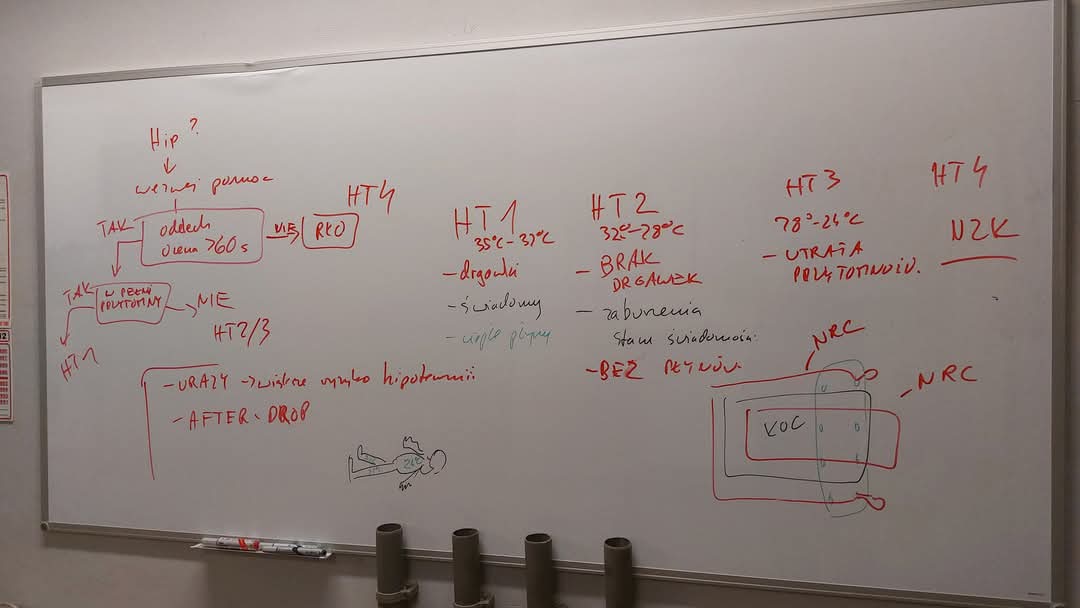 Hip?
wezwij pomoc
TAK
oddech
ocena >60s
NIE
RKO
HT4
TAK
W PEŁNI
PRZYTOMNY
NIE
HT2/3
HT1
- URAZY → większe ryzyko hipotermii
- AFTER DROP
HT1
35°C-32°C
- drgawki
- świadomy
- ciepłe płyny
HT2
32°-28°C
- BRAK
DRGAWEK
- zaburzenia
stanu świadomości
- BEZ PŁYNÓW
HT3
28°-24°C
- UTRATA
PRZYTOMNOŚCI.
HT4
NZK
NRC
- NRC
KOC